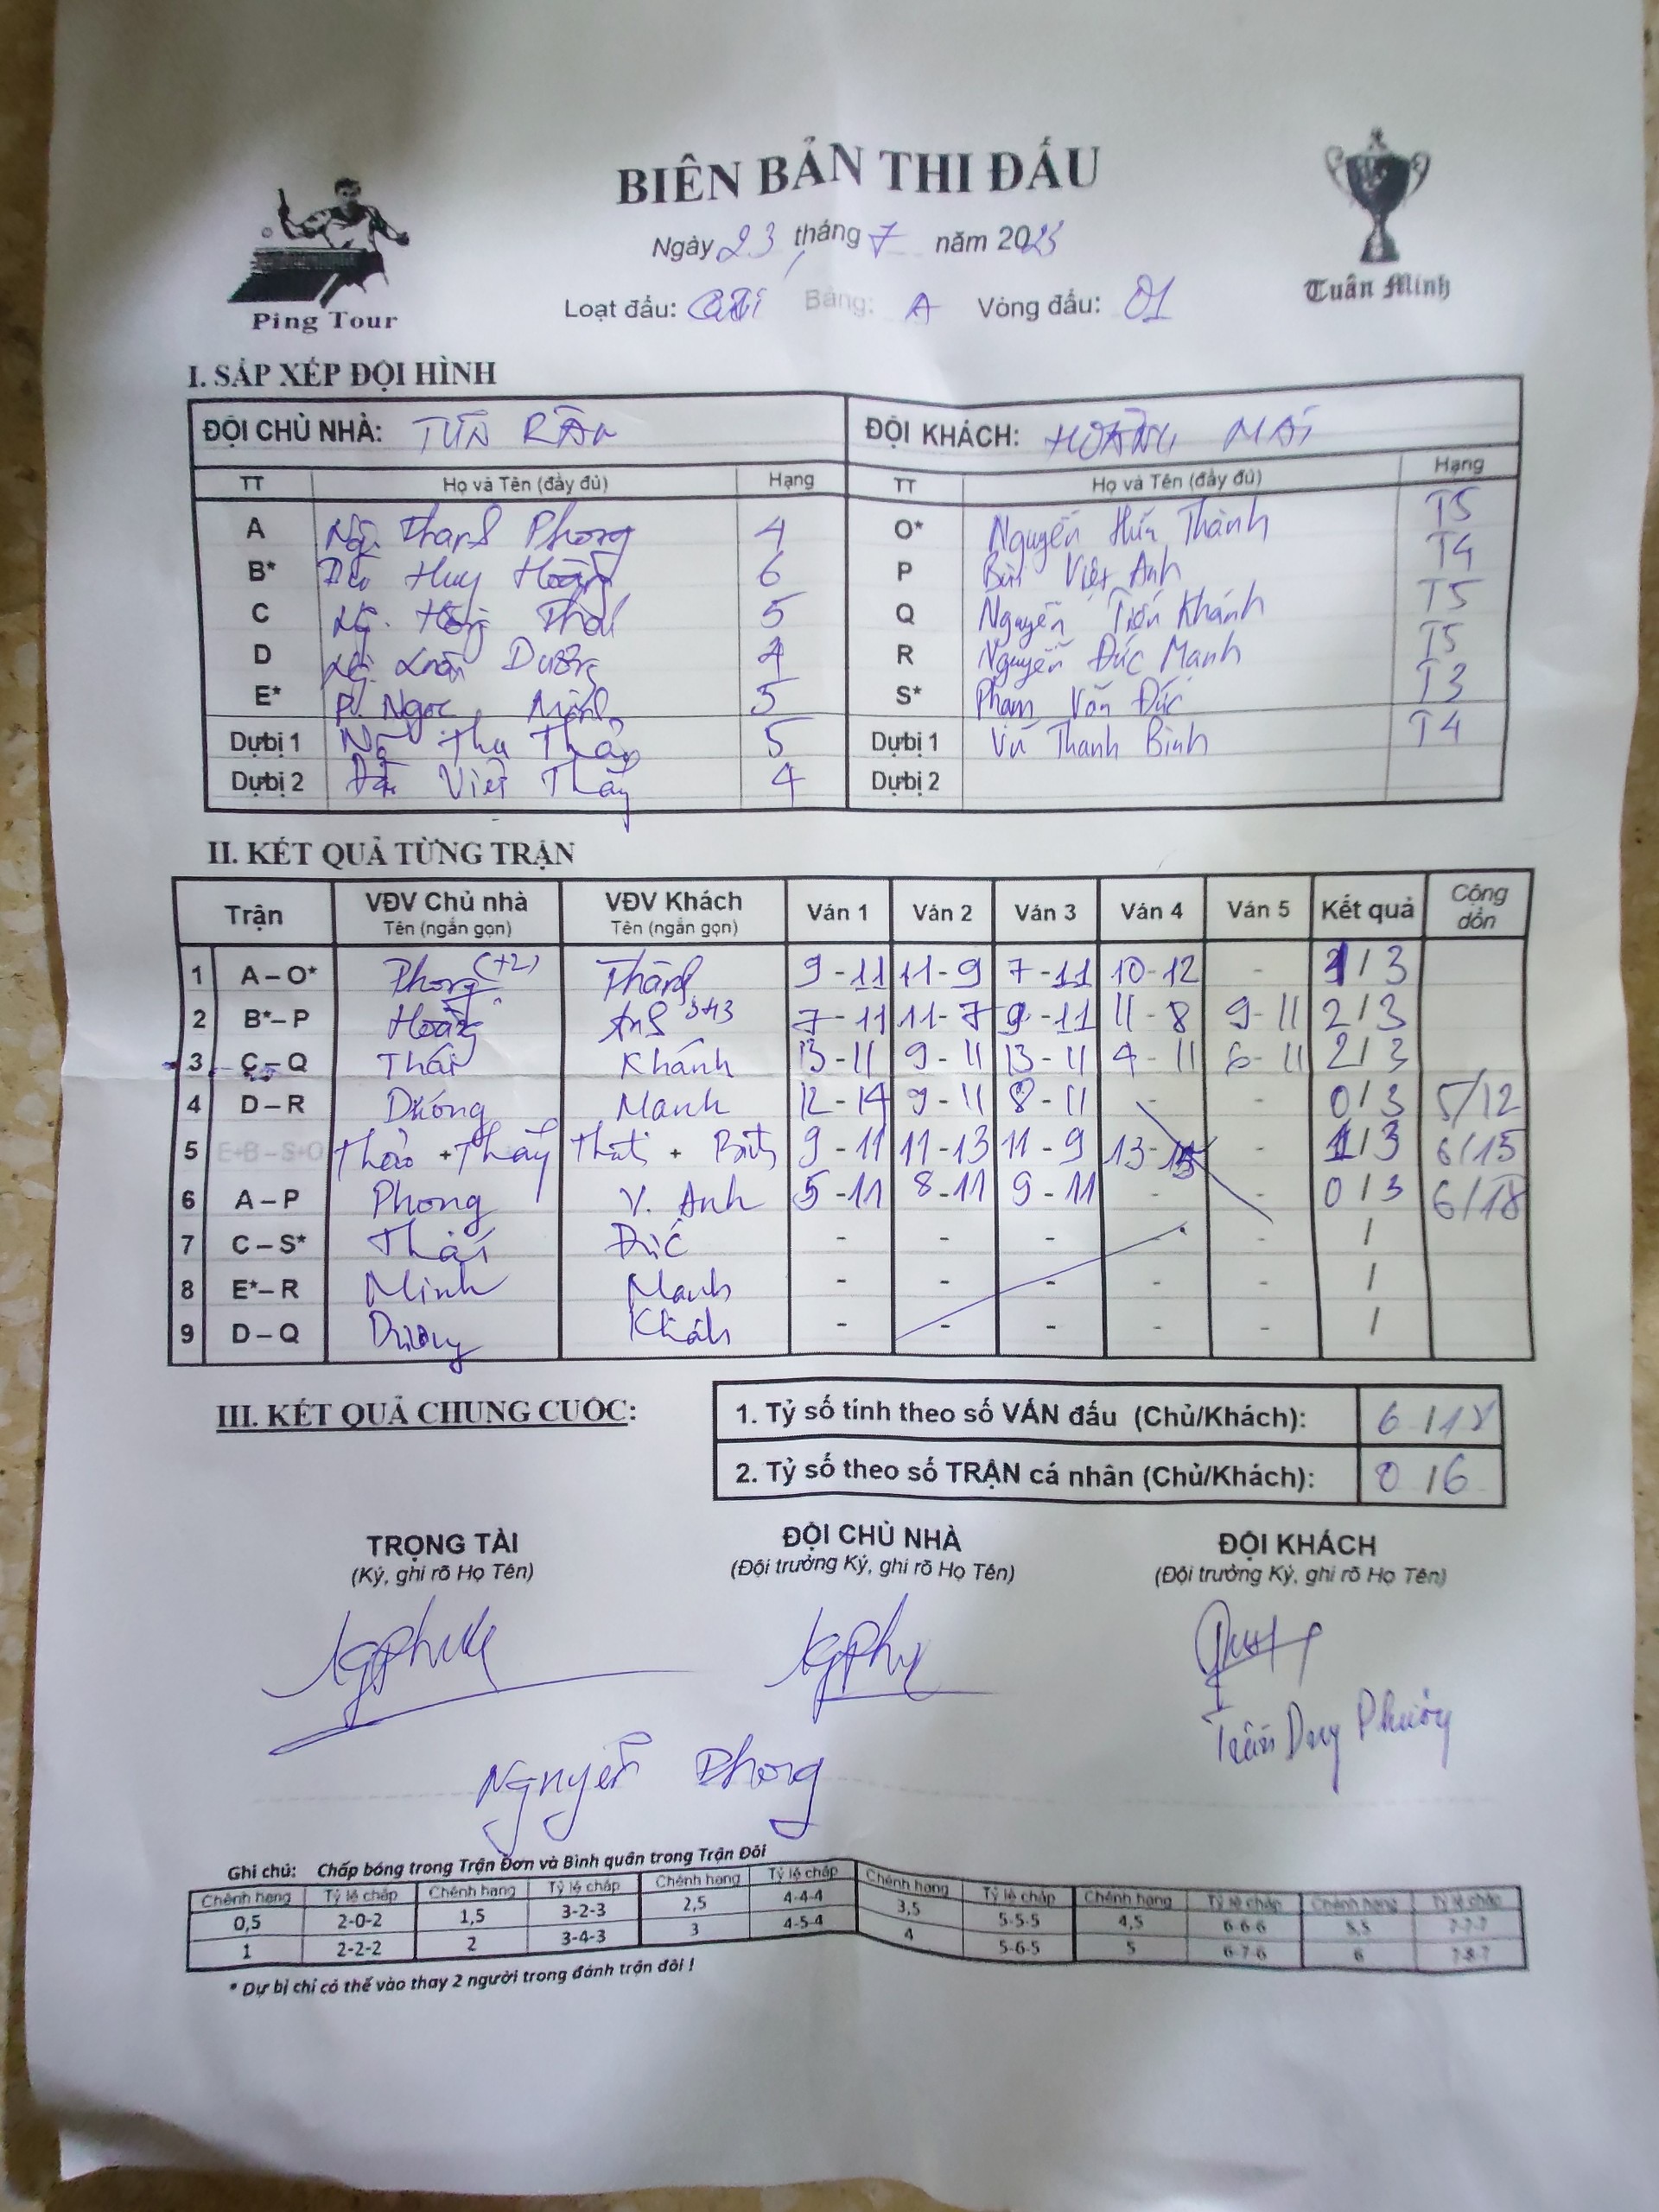 BIÊN BẢN THI ĐẤU
Ngày 23 tháng 7 năm 2025
Ping Tour
Tuấn Minh
Loạt đấu: Bảng: A Vòng đấu: 01
I. SẮP XẾP ĐỘI HÌNH
ĐỘI CHỦ NHÀ: ĐỘI KHÁCH: HOÀNG MAI
TT Họ và Tên (đầy đủ) Hạng TT Họ và Tên (đầy đủ) Hạng
A Ng. Thanh Phong 4 O* Nguyễn Hữu Thành T5
B* Huy Hoàng 6 P Bùi Việt Anh T4
C Thái 5 Q Nguyễn Tiến Khánh T5
D Dương R Nguyễn Đức Mạnh T5
E* P. Ngọc Minh 5 S* Phạm Văn Đức T3
Dự bị 1 Thu Thảo 5 Dự bị 1 Vũ Thanh Bình T4
Dự bị 2 Việt Thầy 4 Dự bị 2
II. KẾT QUẢ TỪNG TRẬN
Trận VĐV Chủ nhà Tên (ngắn gọn) VĐV Khách Tên (ngắn gọn) Ván 1 Ván 2 Ván 3 Ván 4 Ván 5 Kết quả Cộng dồn
1 A – O* Phong (+2) Thành 9 - 11 11 - 9 7 - 11 10 - 12 - 1 / 3
2 B* – P Hoàng Anh 7 - 11 11 - 7 9 - 11 11 - 8 9 - 11 2 / 3
3 C – Q Thái Khánh 13 - 11 9 - 11 13 - 11 4 - 11 6 - 11 2 / 3
4 D – R Dương Manh 12 - 14 9 - 11 8 - 11 - - 0 / 3 5/12
5 E+B – S+O Thảo + Thầy + 9 - 11 11 - 13 11 - 9 13 - 15 - 1 / 3 6/15
6 A – P Phong V. Anh 5 - 11 8 - 11 9 - 11 - - 0 / 3 6/18
7 C – S* Thái Đức - - - - - /
8 E* – R Minh Manh - - - - - /
9 D – Q Dương Khánh - - - - - /
III. KẾT QUẢ CHUNG CUỘC:
1. Tỷ số tính theo số VÁN đấu (Chủ/Khách): 6 / 18
2. Tỷ số theo số TRẬN cá nhân (Chủ/Khách): 0 / 6
TRỌNG TÀI ĐỘI CHỦ NHÀ ĐỘI KHÁCH
(Ký, ghi rõ Họ Tên) (Đội trưởng Ký, ghi rõ Họ Tên) (Đội trưởng Ký, ghi rõ Họ Tên)
Trần Duy Phương
Nguyễn Phong
Ghi chú: Chấp bóng trong Trận Đơn và Bình quân trong Trận Đôi
Chênh hạng Tỷ lệ chấp Chênh hạng Tỷ lệ chấp Chênh hạng Tỷ lệ chấp Chênh hạng Tỷ lệ chấp Chênh hạng Tỷ lệ chấp Chênh hạng Tỷ lệ chấp
0,5 2-0-2 1,5 3-2-3 2,5 4-4-4 3,5 5-5-5 4,5 6-6-6 5,5 7-7-7
1 2-2-2 2 3-4-3 3 4-5-4 4 5-6-5 5 6-7-6 6 7-8-7
* Dự bị chỉ có thể vào thay 2 người trong đánh trận đôi !